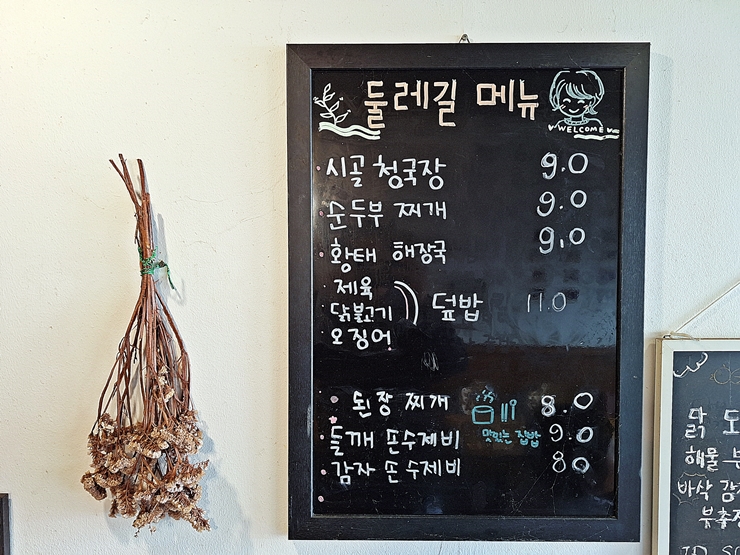 둘레길 메뉴
WELCOME
시골 청국장 9.0
순두부 찌개 9.0
황태 해장국 9.0
제육
닭불고기 덮밥 11.0
오징어
된장 찌개 8.0
맛있는 집밥
들깨 손수제비 9.0
감자 손수제비 80
닭 도
해물
바삭 감
부추전